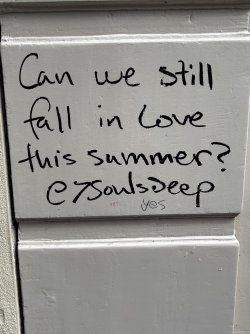 Can we still
fall in love
this summer?
@7SoulsDeep
yes